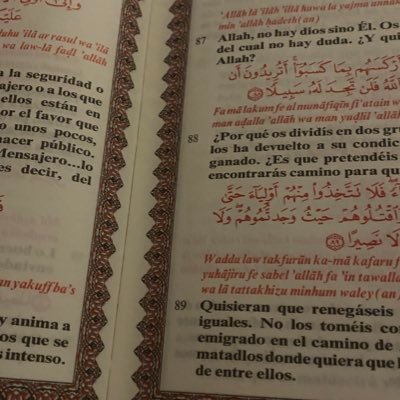 وَإِلَىٰ
luhu 'ilā ar rasul wa 'ilā
wa law-lā faḍl 'allāh
a la seguridad o
sajero o a los que
ellos están en
or el favor que
o unos pocos,
hacer público.
Mensajero...lo
es decir, del
an yakuff ba's
y anima a
os que se
s intenso.
'Allāh lā 'ilāh 'illā huwa la yajma annak
min 'allāh ḥadeth (an)
87 Allah, no hay dioses sino Él. Os
del cual no hay duda. ¿Y qui
Allah?
أَرْكَسَهُم بِمَا كَسَبُوٓا۟ أَتُرِيدُونَ أَن
ٱللَّهُ فَلَن تَجِدَ لَهُۥ سَبِيلًا
Fa mā lakum fe al munāfiqīn fi'atain w
man aḍalla 'allāh wa man yuḍlil 'allāh
88 ¿Por qué os dividís en dos gru
los ha devuelto a su condic
ganado. ¿Es que pretendéis
encontrarás camino para qu
فَلَا تَتَّخِذُوا۟ مِنْهُمْ أَوْلِيَآءَ حَتَّىٰ
وَٱقْتُلُوهُمْ حَيْثُ وَجَدتُّمُوهُمْ وَلَا
لَا نَصِيرًا ٨٩
Waddu law takfurūn ka-mā kafaru f
yuhājiru fe sabel 'allāh fa 'in tawalla
wa lā tattakhizu minhum waley (an)
89 Quisieran que renegáseis
iguales. No los toméis con
emigrado en el camino de
matadlos donde quiera que l
de entre ellos.